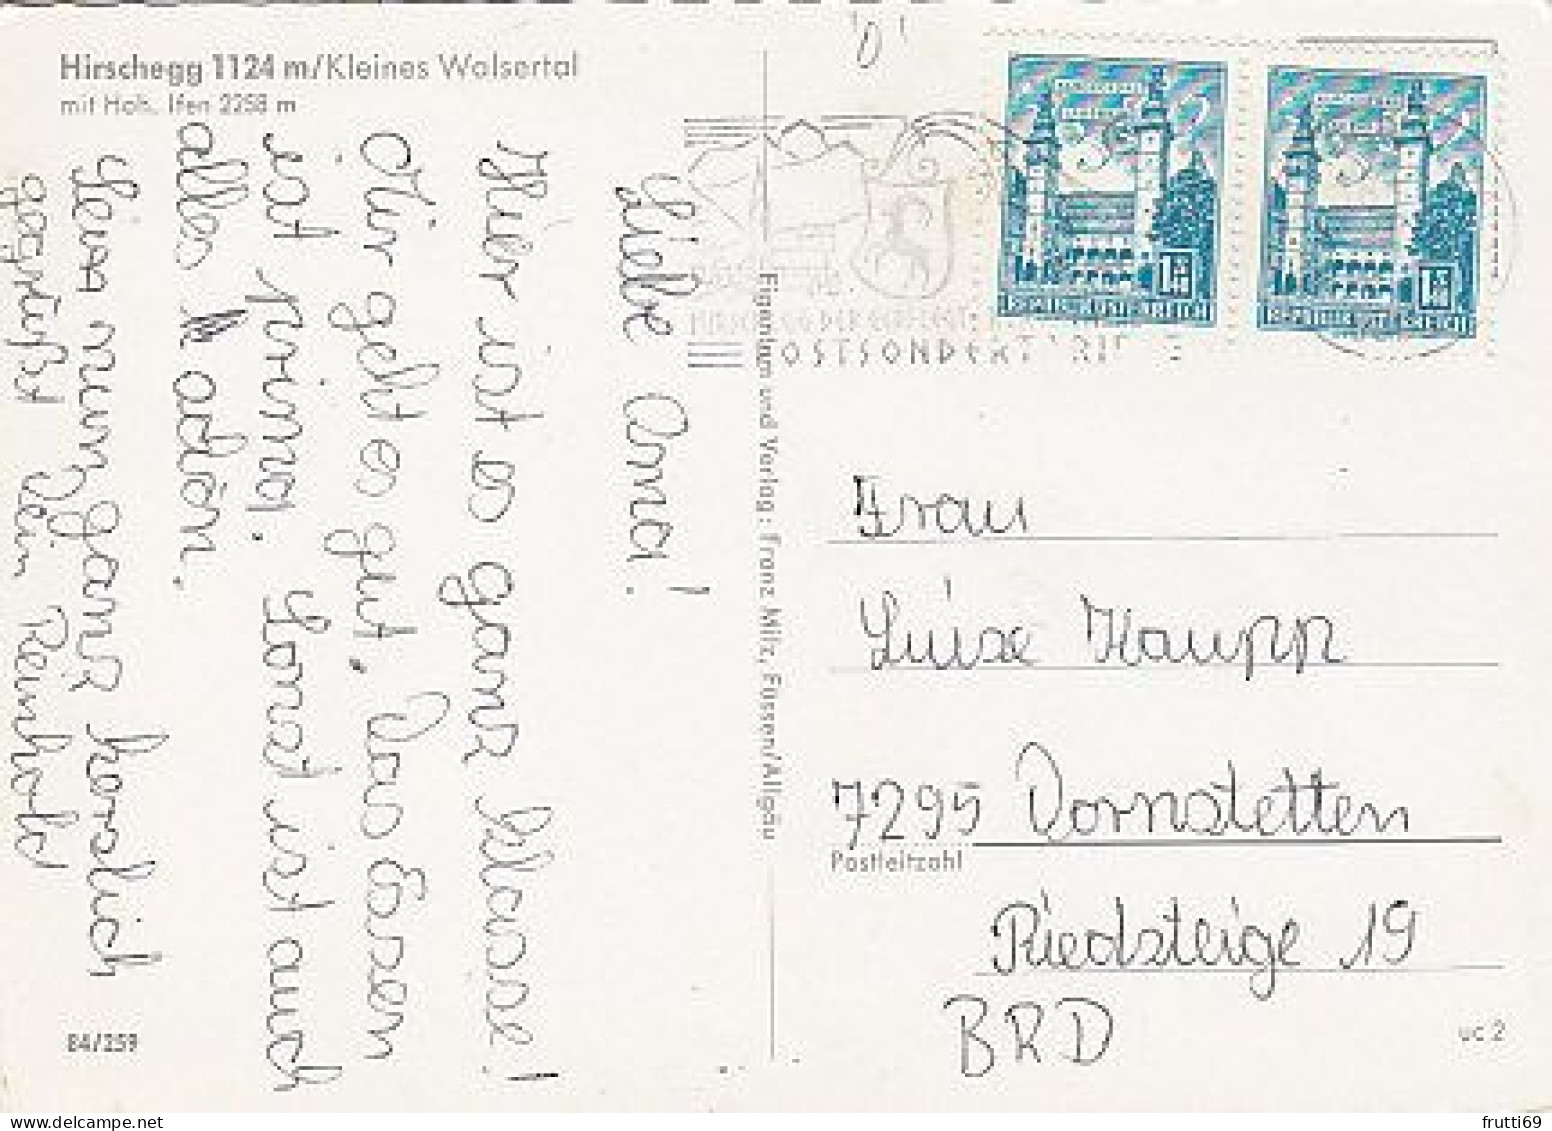 Hirschegg 1124 m/Kleines Walsertal
mit Hoh. Ifen 2258 m
Liebe Oma!
Hier ist es ganz klasse!
Mir geht es gut. Das Essen
ist prima. Sonst ist auch
alles schön.
Sei nun ganz herzlich
gegrüßt dein Reinhold
84/259
Eigentum und Verlag: Franz Milz, Füssen/Allgäu
POSTSONDERTARIF
REPUBLIK ÖSTERREICH
REPUBLIK ÖSTERREICH
Frau
Luise Haupp
7295 Dornstetten
Postleitzahl
Riedsteige 19
BRD
uc 2
frutti69